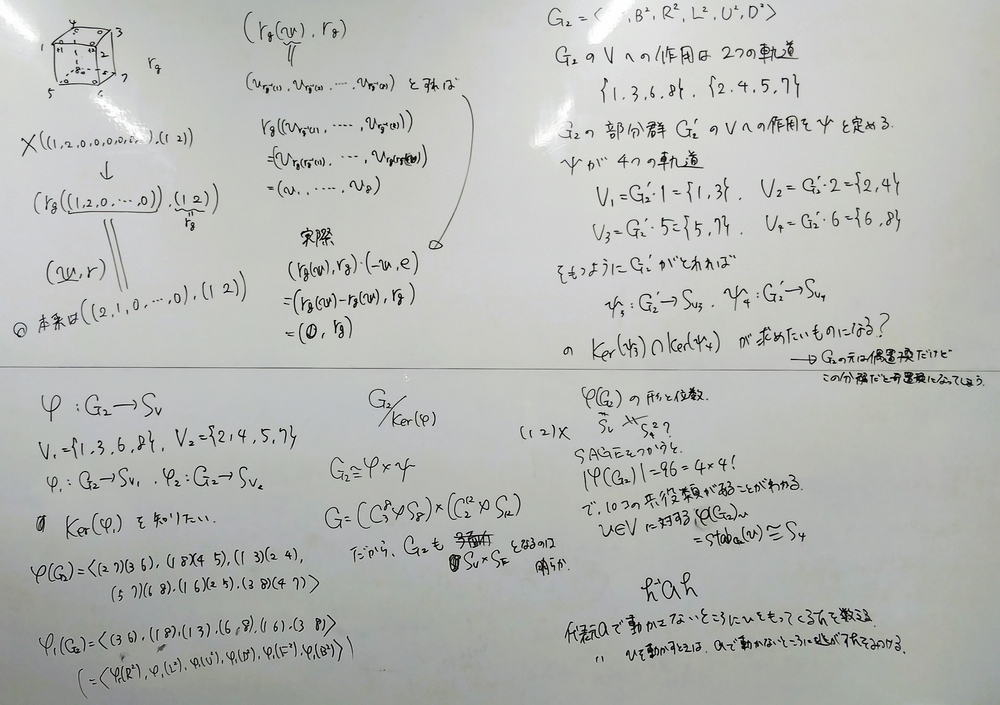 4
3
1
2
5
6
7
r_g
X((1,2,0,0,0,0,0,0),(1 2))
↓
(r_g((1,2,0,…,0)),(1 2))
r_g
(𝓋,r)
本来は((2,1,0,…,0),(1 2))
(r_g(𝓋),r_g)
(v_{r_g^{-1}(1)},v_{r_g^{-1}(2)},…,v_{r_g^{-1}(8)}) とすれば
r_g((v_{r_g^{-1}(1)},…,v_{r_g^{-1}(8)}))
=(v_1,…,v_8)
実際
(r_g(𝓋),r_g)・(-𝓋,e)
=(r_g(𝓋)-r_g(𝓋),r_g)
=(0,r_g)
G₂=⟨ ,B²,R²,L²,U²,D²⟩
G₂のVへの作用は2つの軌道
{1,3,6,8}, {2,4,5,7}
G₂の部分群G₂'のVへの作用をψと定める.
ψが4つの軌道
V₁=G₂'・1={1,3}, V₂=G₂'・2={2,4}
V₃=G₂'・5={5,7}, V₄=G₂'・6={6,8}
をもつようにG₂'がとれれば
ψ₃:G₂'→S_{V₃}, ψ₄:G₂'→S_{V₄}
の Ker(ψ₃)∩Ker(ψ₄) が求めたいものになる?
→G₂の元は偶置換だけど
この分解だと奇置換になってしまう.
φ:G₂→S_V
V₁={1,3,6,8}, V₂={2,4,5,7}
φ₁:G₂→S_{V₁}, φ₂:G₂→S_{V₂}
Ker(φ₁)を知りたい.
φ(G₂)=⟨(2 7)(3 6),(1 8)(4 5),(1 3)(2 4),
(5 7)(6 8),(1 6)(2 5),(3 8)(4 7)⟩
φ₁(G₂)=⟨(3 6),(1 8),(1 3),(6 8),(1 6),(3 8)⟩
(=⟨φ₁(R²),φ₁(L²),φ₁(U²),φ₁(D²),φ₁(F²),φ₁(B²)⟩)
G₂/Ker(φ)
G₂≅φ×ψ
G=(C₃⁸⋊S₈)×(C₂¹²⋊S₁₂)
だから、G₂も S_V×S_E となるのは
明らか.
φ(G₂)の形と位数.
(1 2)×
S_V
S₄²?
SAGEをつかうと.
|φ(G₂)|=96=4×4!
で,10コの共役類があることがわかる.
v∈Vに対するφ(G₂)_v
=stab_{G₂}(v)≅S₄
h⁻¹ah
代表aで動かさないところにvをもってくるhを数える.
〃 vを動かすときは, aで動かないところに